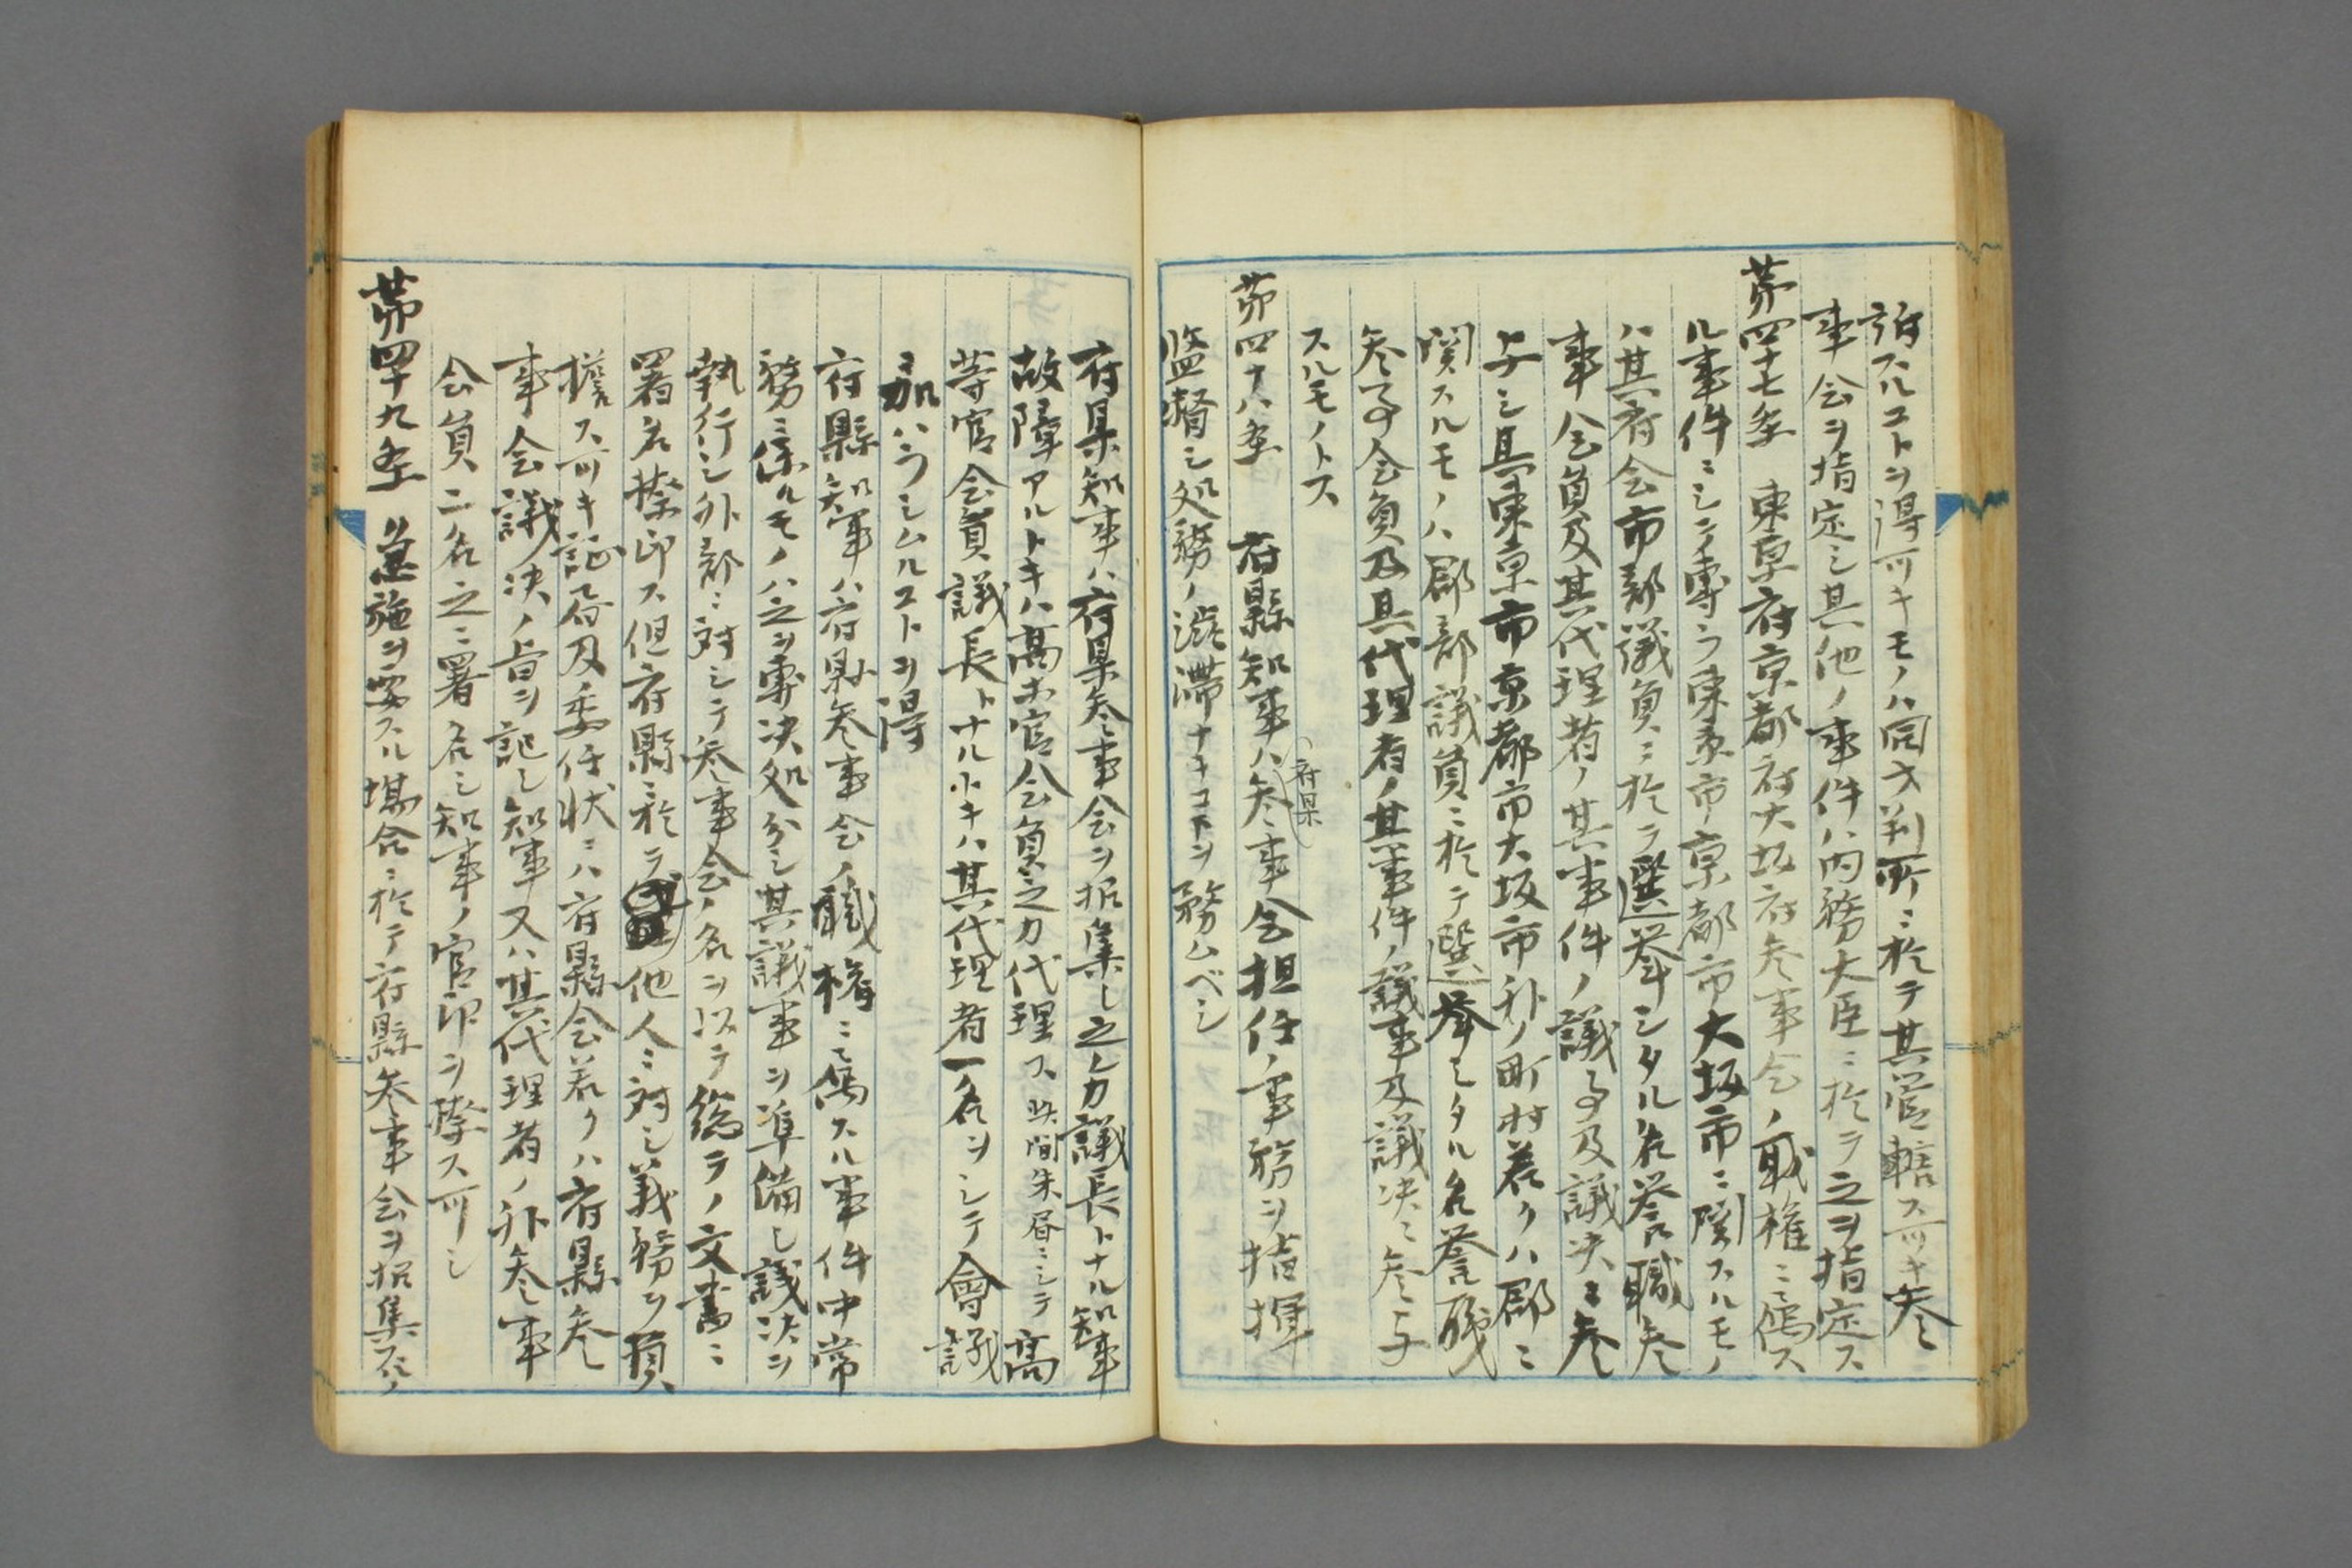 訴スルコトヲ得可キモノハ同火判所ニ於テ其管轄ス可キ参
事会ヲ指定シ其他ノ事件ハ内務大臣ニ於テ之ヲ指定ス
第四十七条 東京府京都府大坂府参事会ノ職権ニ属ス
ル事件ニシテ専ラ東京市京都市大坂市ニ関スルモノ
ハ其府会市部議員ニ於テ選挙シタル名誉職参
事会員及其代理者ノ其事件ノ議事及議決ニ参
与シ其東京市京都市大坂市外ノ町村若クハ郡ニ
関スルモノハ郡部議員ニ於テ選挙シタル名誉職
参事会員及其代理者ノ其事件ノ議事及議決ニ参与
スルモノトス
第四十八条 府縣知事ハ(府県)参事会担任ノ事務ヲ指揮
監督シ処務ノ渋滞ナキコトヲ務ムベシ
府県知事ハ府県参事会ヲ招集し之カ議長トナル知事
故障アルトキハ高等官会員之カ代理ス此間朱書ニシテ高
等官会員議長トナル小キハ其代理者一名ヲシテ會議
ニ加ハラシムルコトヲ得
府縣知事ハ府縣参事会ノ職権ニ属スル事件中常
務ニ係ルモノハ之ヲ専決処分シ其議事ヲ準備し議決ヲ
執行シ外部ニ対シテ参事会ノ名ヲ以テ総テノ文書ニ
署名捺印ス但府縣ニ於テ他人ニ対シ義務ヲ負
擔ス可キ証書及委任状ニハ府縣会若クハ府縣参
事会議决ノ旨ヲ記し知事又ハ其代理者ノ外参事
会員二名之ニ署名シ知事ノ官印ヲ捺ス可シ
第四十九条 急施ヲ要スル場合ニ於テ府縣参事会ヲ招集スルノ